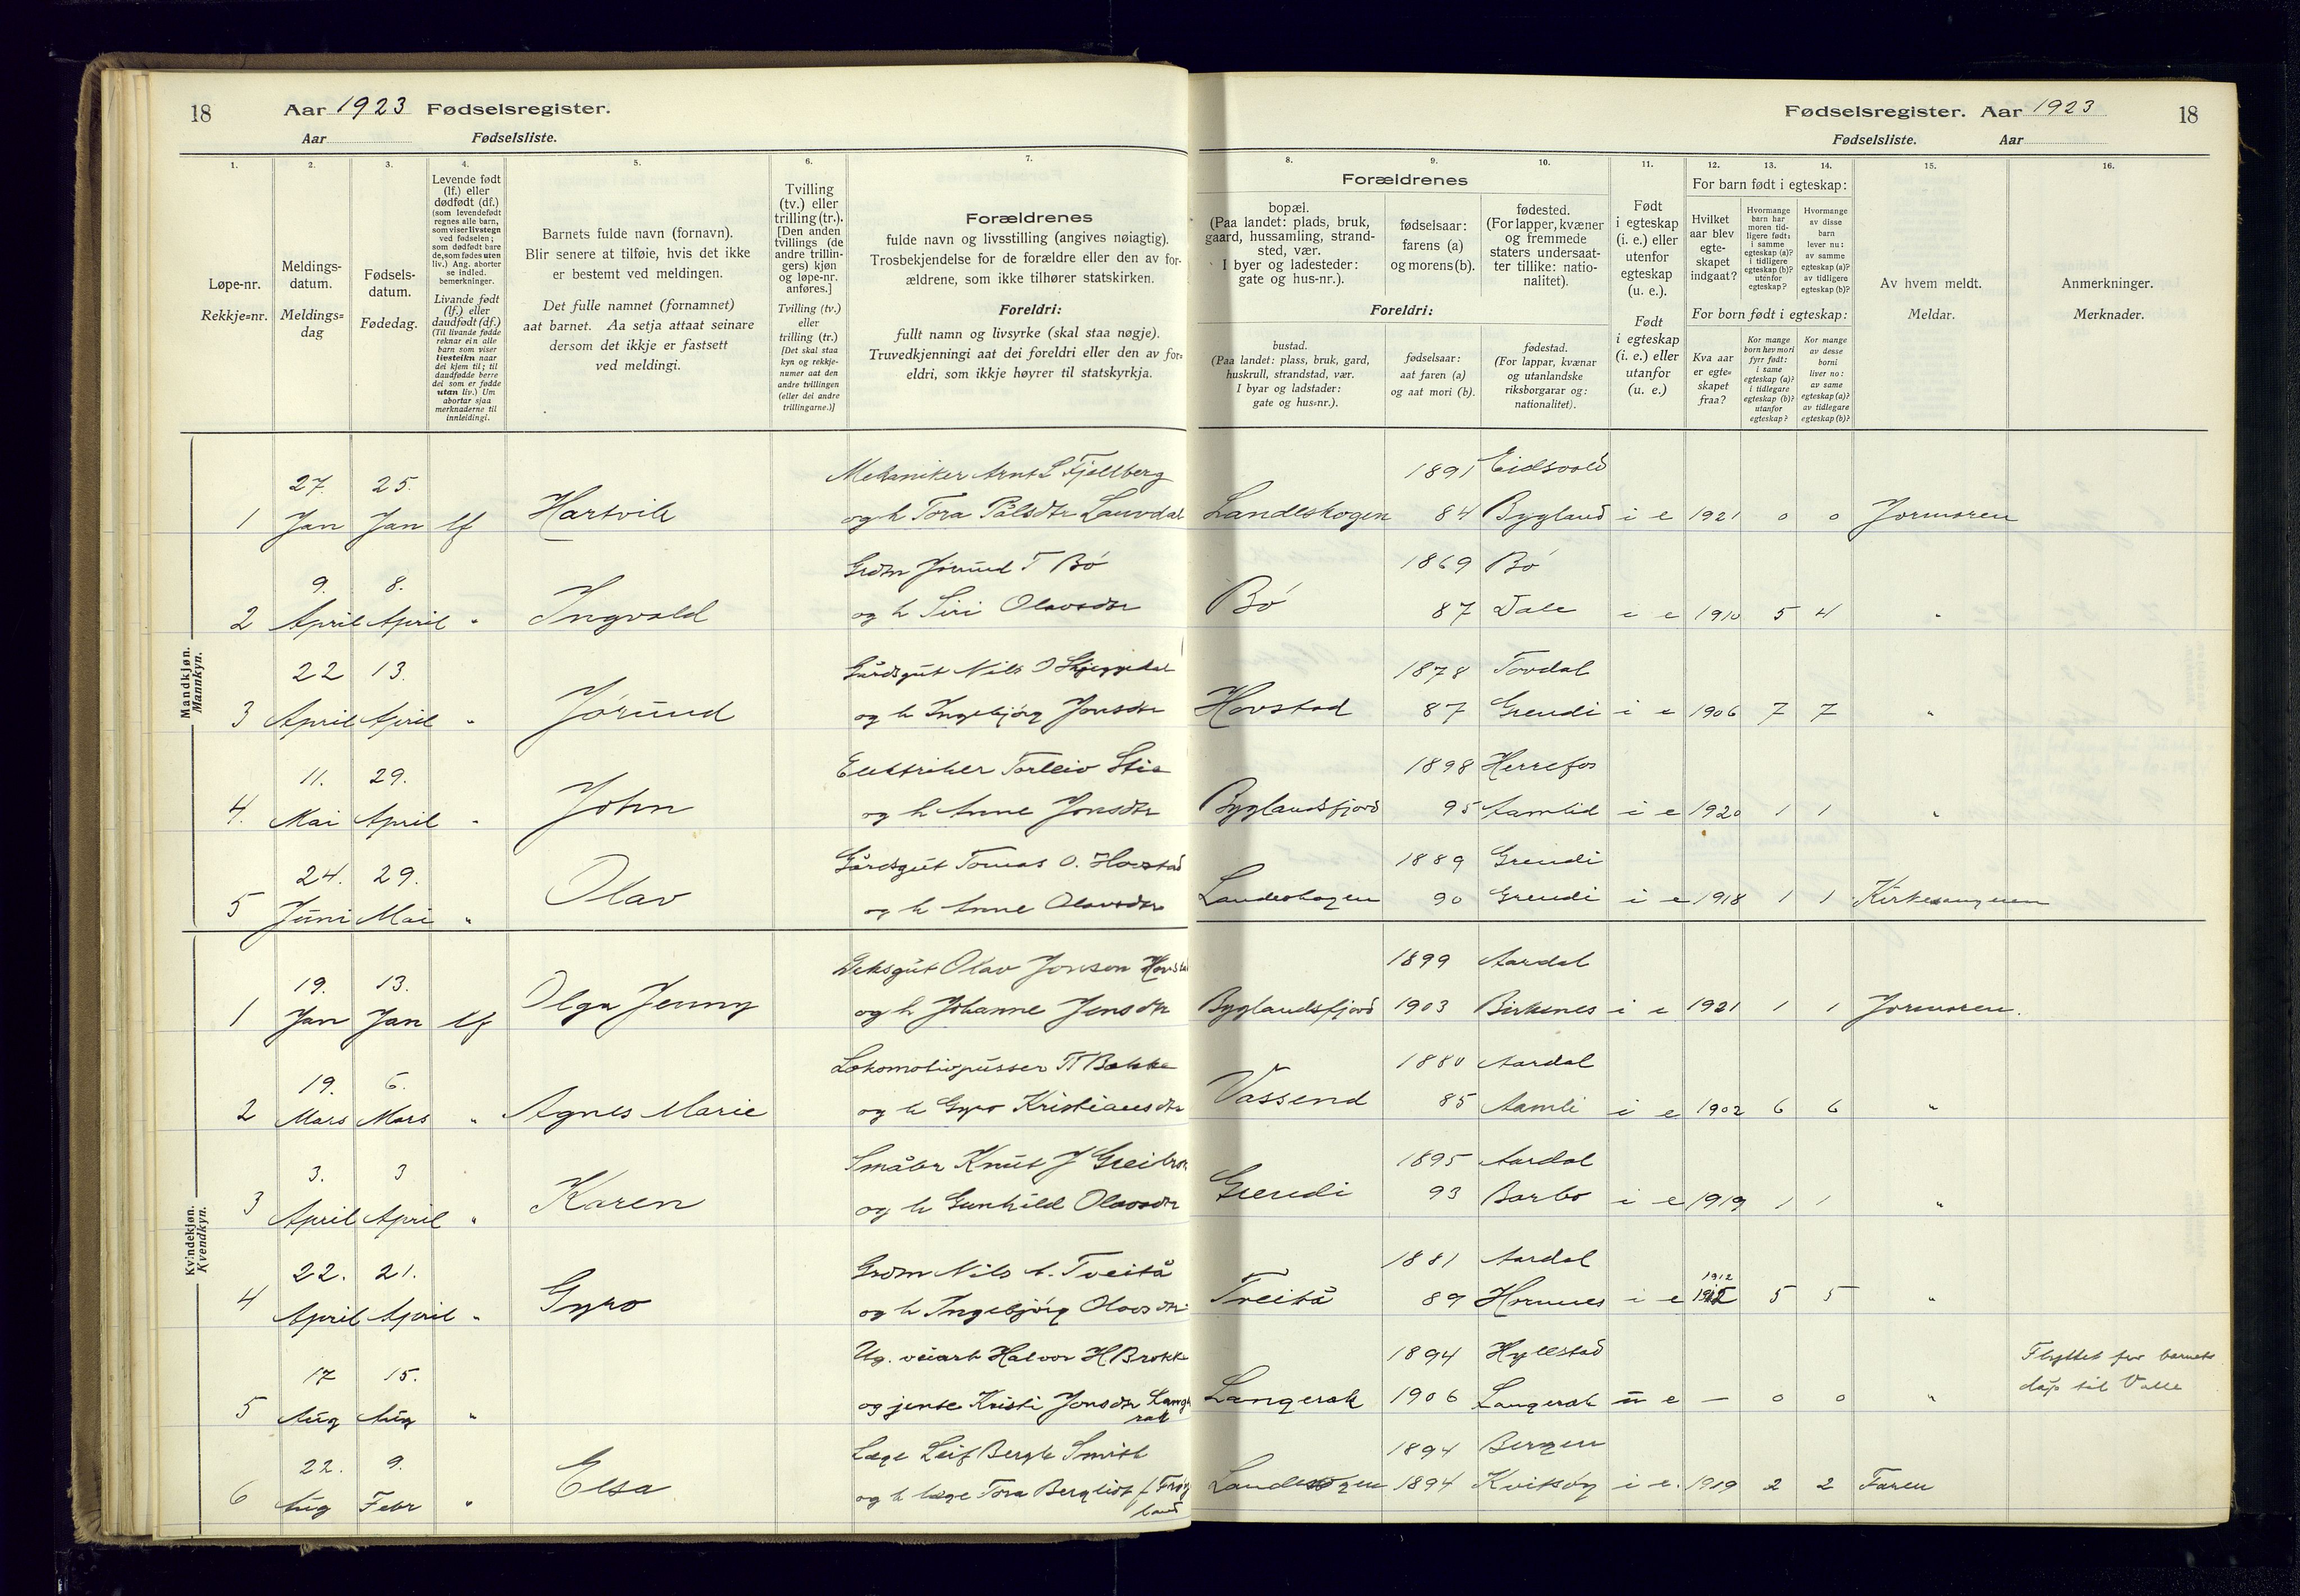 18 Aar 1923 Fødselsregister.
Aar Fødselsliste.
Fødselsregister. Aar 1923 18
Fødselsliste. Aar
1. 2. 3. 4. 5. 6. 7. 8. 9. 10. 11. 12. 13. 14. 15. 16.
Løpe-nr.
Rekkje=nr.
Meldings-
datum.
Meldings=
dag
Fødsels-
datum.
Fødedag.
Levende født
(lf.) eller
dødfødt (df.)
(som levendefødt
regnes alle barn,
som viser livstegn
ved fødselen;
som dødfødt bare
de, som fødes uten
liv.) Ang. aborter
se indled.
bemerkninger.
Livande født
(lf.) eller
daudfødt (df.)
(Til livande fødde
reknar ein alle
barn som viser
livsteikn naar
dei kjem til; til
daudfødde berre
dei som er fødde
utan liv.) Um
abortar sjaa
merknaderne til
innleidingi.
Barnets fulde navn (fornavn).
Blir senere at tilføie, hvis det ikke
er bestemt ved meldingen.
Det fulle namnet (fornamnet)
aat barnet. Aa setja attaat seinare
dersom det ikkje er fastsett
ved meldingi.
Tvilling
(tv.) eller
trilling (tr.).
[Den anden
tvillings (de
andre trillin-
gers) kjøn
og løpe-nr.
anføres.]
Tvilling (tv.)
eller
trilling (tr.)
[Det skal staa
kyn og rekkje-
numer aat den
andre tvillingen
(eller dei andre
trillingarne.)]
Forældrenes
fulde navn og livsstilling (angives nøiagtig).
Trosbekjendelse for de forældre eller den av for-
ældrene, som ikke tilhører statskirken.
Foreldri:
fullt namn og livsyrke (skal staa nøgje).
Truvedkjenningi aat dei foreldri eller den av for=
eldri, som ikkje høyrer til statskyrkja.
Forældrenes
bopæl.
(Paa landet: plads, bruk,
gaard, hussamling, strand-
sted, vær.
I byer og ladesteder:
gate og hus-nr.).
fødselsaar:
farens (a)
og morens (b).
fødested.
(For lapper, kvæner
og fremmede
staters undersaat-
ter tillike: natio-
nalitet).
Foreldri:
bustad.
(Paa landet: plass, bruk, gard,
huskrull, strandstad, vær.
I byar og ladstader:
gate og hus=nr.).
fødselsaar:
aat faren (a)
og aat mori (b).
fødestad.
(For lappar, kvænar
og utanlandske
riksborgarar og:
nationalitet).
Født
i egteskap
(i. e.) eller
utenfor
egteskap
(u. e.).
Født
i egteskap
(i. e.) eller
utanfor
(u. e.)
For barn født i egteskap:
Hvilket
aar blev
egte-
skapet
indgaat?
Hvormange
barn har
moren tid-
ligere født:
i samme
egteskap (a)?
i tidligere
egteskap (b)?
utenfor
egteskap?
Hvormange
av disse
barn
lever nu:
av samme
egteskap (a)?
av tidligere
egteskap (b)?
For born født i egteskap:
Kva aar
er egte=
skapet
fraa?
Kor mange
born hev mori
fyrr født:
i same
egteskap (a)?
i tidlegare
egteskap (b)?
utanfor
egteskap?
Kor mange
av desse
borni
liver no:
av same
egteskap (a)?
av tidlegare
egteskap (b)?
Av hvem meldt.
Meldar.
Anmerkninger.
Merknader.
Mandkjøn.
Mannkyn.
27. 25. Mekaniker Arnt L Fjellberg 1891 Eidsvold
1 Jan Jan lf Hartvik og h Tora Pålsdtr Lauvdal Landeskogen 84 Bygland i e 1921 0 0 Jormoren
9. 8. Grdm Jørund T Bø 1869 Bø
2 April April " Ingvald og h Siri Olavsdtr Bø 87 Dale i e 1910 5 4 "
22 13. Gårdsgut Nils O Skjeggedal 1878 Tovdal
3 April April " Jørund og h Ingebjørg Jonsdtr Hovstad 87 Grendi i e 1906 7 7 "
11. 29. Elektriker Torleiv Stie 1898 Herrefos
4. Mai April " John og h Anne Jonsdtr Byglandsfjord 95 Aamlid i e 1920 1 1 "
24. 29. Gårdsgut Tomas O. Hovstad 1889 Grendi
5 Juni Mai " Olav og h Anne Olavsdtr Landeskogen 90 Grendi i e 1918 1 1 Kirkesangeren
Kvindekjøn.
Kvendkyn.
19. 13. Olav Jonson Hovstad 1899 Aardal
1 Jan Jan lf Olga Jenny og h Johanne Jensdtr Byglandsfjord 1903 Birkenes i e 1921 1 1 Jormoren.
19. 6. Lokomotivpusser T Bakke 1880 Aardal
2 Mars Mars " Agnes Marie og h Gyro Kristiansdtr Vassend 85 Aamli i e 1902 6 6 "
3. 3 Småbr Knut J 1895 Aardal
3 April April " Karen og h Gunhild Olavsdtr Grendi 93 Barbo i e 1919 1 1 "
22. 21. Grdm Nils A. Tveitå 1881 Aardal
4 April April " Gyro og h Ingebjørg Olavsdtr Tveitå 89 Hornnes i e 1912 5 5 "
17 15. Ug. veiarb Halvor H Brokke 1894 Hyllestad Flyttet før barnets
5 Aug Aug " og jente Kristi Jonsdtr Lang Langerak 1906 Langerak u e — 0 0 " dåp til Valle
rak
22. 9. Læge Leif Bergh Smith 1894 Bergen
6 Aug Febr " Elsa og h læge Tora Bergliot f. Frøy Landeskogen 1894 Kvitsøy i e. 1919 2 2 Faren
land